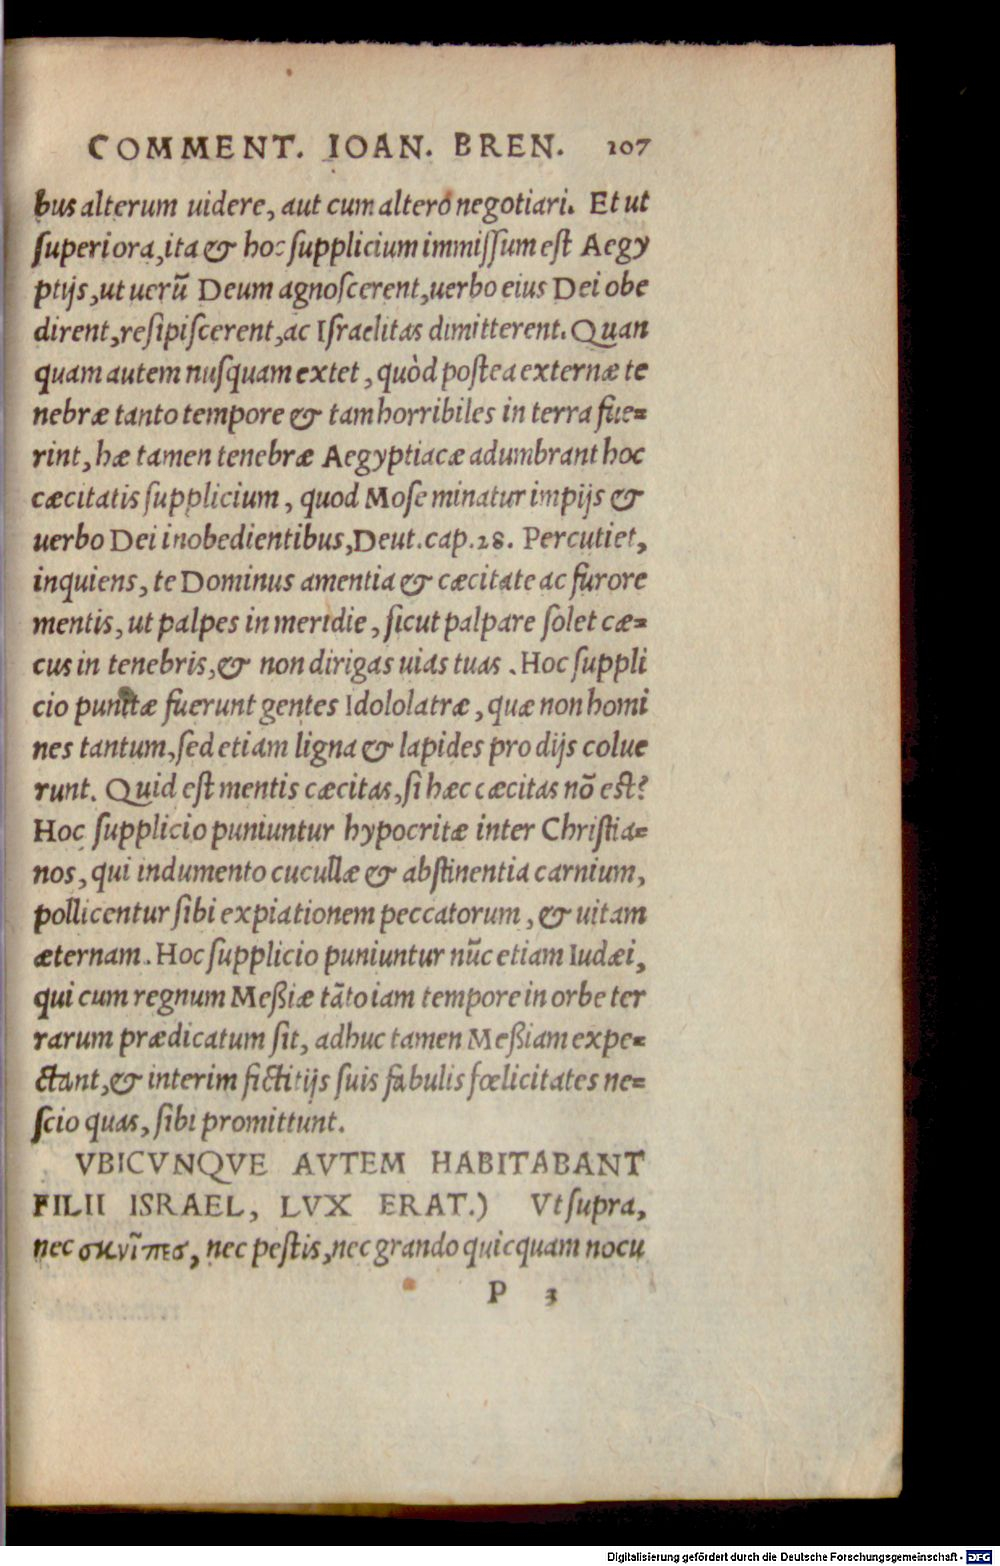 COMMENT. IOAN. BREN. 107
bus alterum uidere, aut cum altero negotiari. Et ut
superiora, ita & hoc supplicium immissum est Aegy
ptijs, ut uerũ Deum agnoscerent, uerbo eius Dei obe
dirent, resipiscerent, ac Israelitas dimitterent. Quan
quam autem nusquam extet, quòd postea externæ te
nebræ tanto tempore & tam horribiles in terra fue=
rint, hæ tamen tenebræ Aegyptiacæ adumbrant hoc
cæcitatis supplicium, quod Mose minatur impijs &
uerbo Dei inobedientibus, Deut. cap. 28. Percutiet,
inquiens, te Dominus amentia & cæcitate ac furore
mentis, ut palpes in meridie, sicut palpare solet cæ=
cus in tenebris, & non dirigas uias tuas. Hoc suppli
cio punitæ fuerunt gentes Idololatræ, quæ non homi
nes tantum, sed etiam ligna & lapides pro dijs colue
runt. Quid est mentis cæcitas, si hæc cæcitas nõ est?
Hoc supplicio puniuntur hypocritæ inter Christia=
nos, qui indumento cucullæ & abstinentia carnium,
pollicentur sibi expiationem peccatorum, & uitam
æternam. Hoc supplicio puniuntur nũc etiam Iudæi,
qui cum regnum Meßiæ tãto iam tempore in orbe ter
rarum prædicatum sit, adhuc tamen Meßiam expe=
ctant, & interim fictitijs suis fabulis fœlicitates ne=
scio quas, sibi promittunt.
VBICVNQVE AVTEM HABITABANT
FILII ISRAEL, LVX ERAT.) Vt supra,
nec σκνῖπεσ, nec pestis, nec grando quicquam nocu
P 3
Digitalisierung gefördert durch die Deutsche Forschungsgemeinschaft - DFG